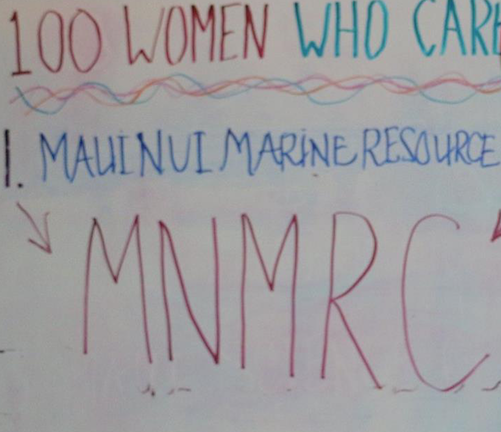 100 WOMEN WHO CARE
1. MAUI NUI MARINE RESOURCE
MNMRC